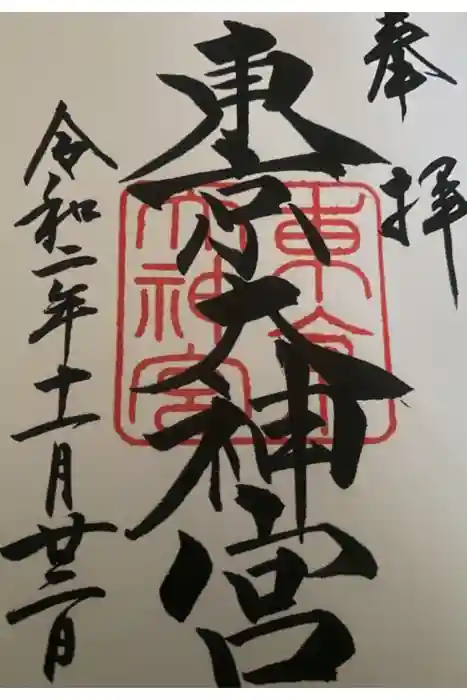 奉拝
東京大神宮
東京大神宮
令和二年十一月廿二日